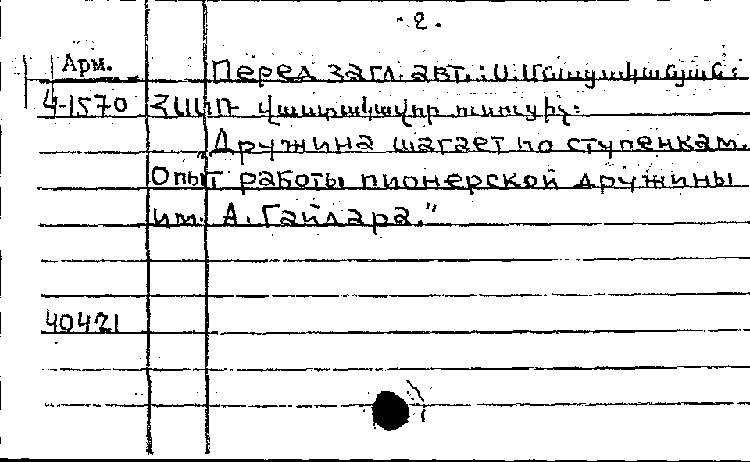 - 2.
Арм. Перед загл. авт.: Ս. Մ
4-1570 ՀՍՍՌ վաստակավոր ուսուցիչ:
„Дружина шагает по ступенкам.
Опыт работы пионерской дружины
им. А. Гайдара."
40421